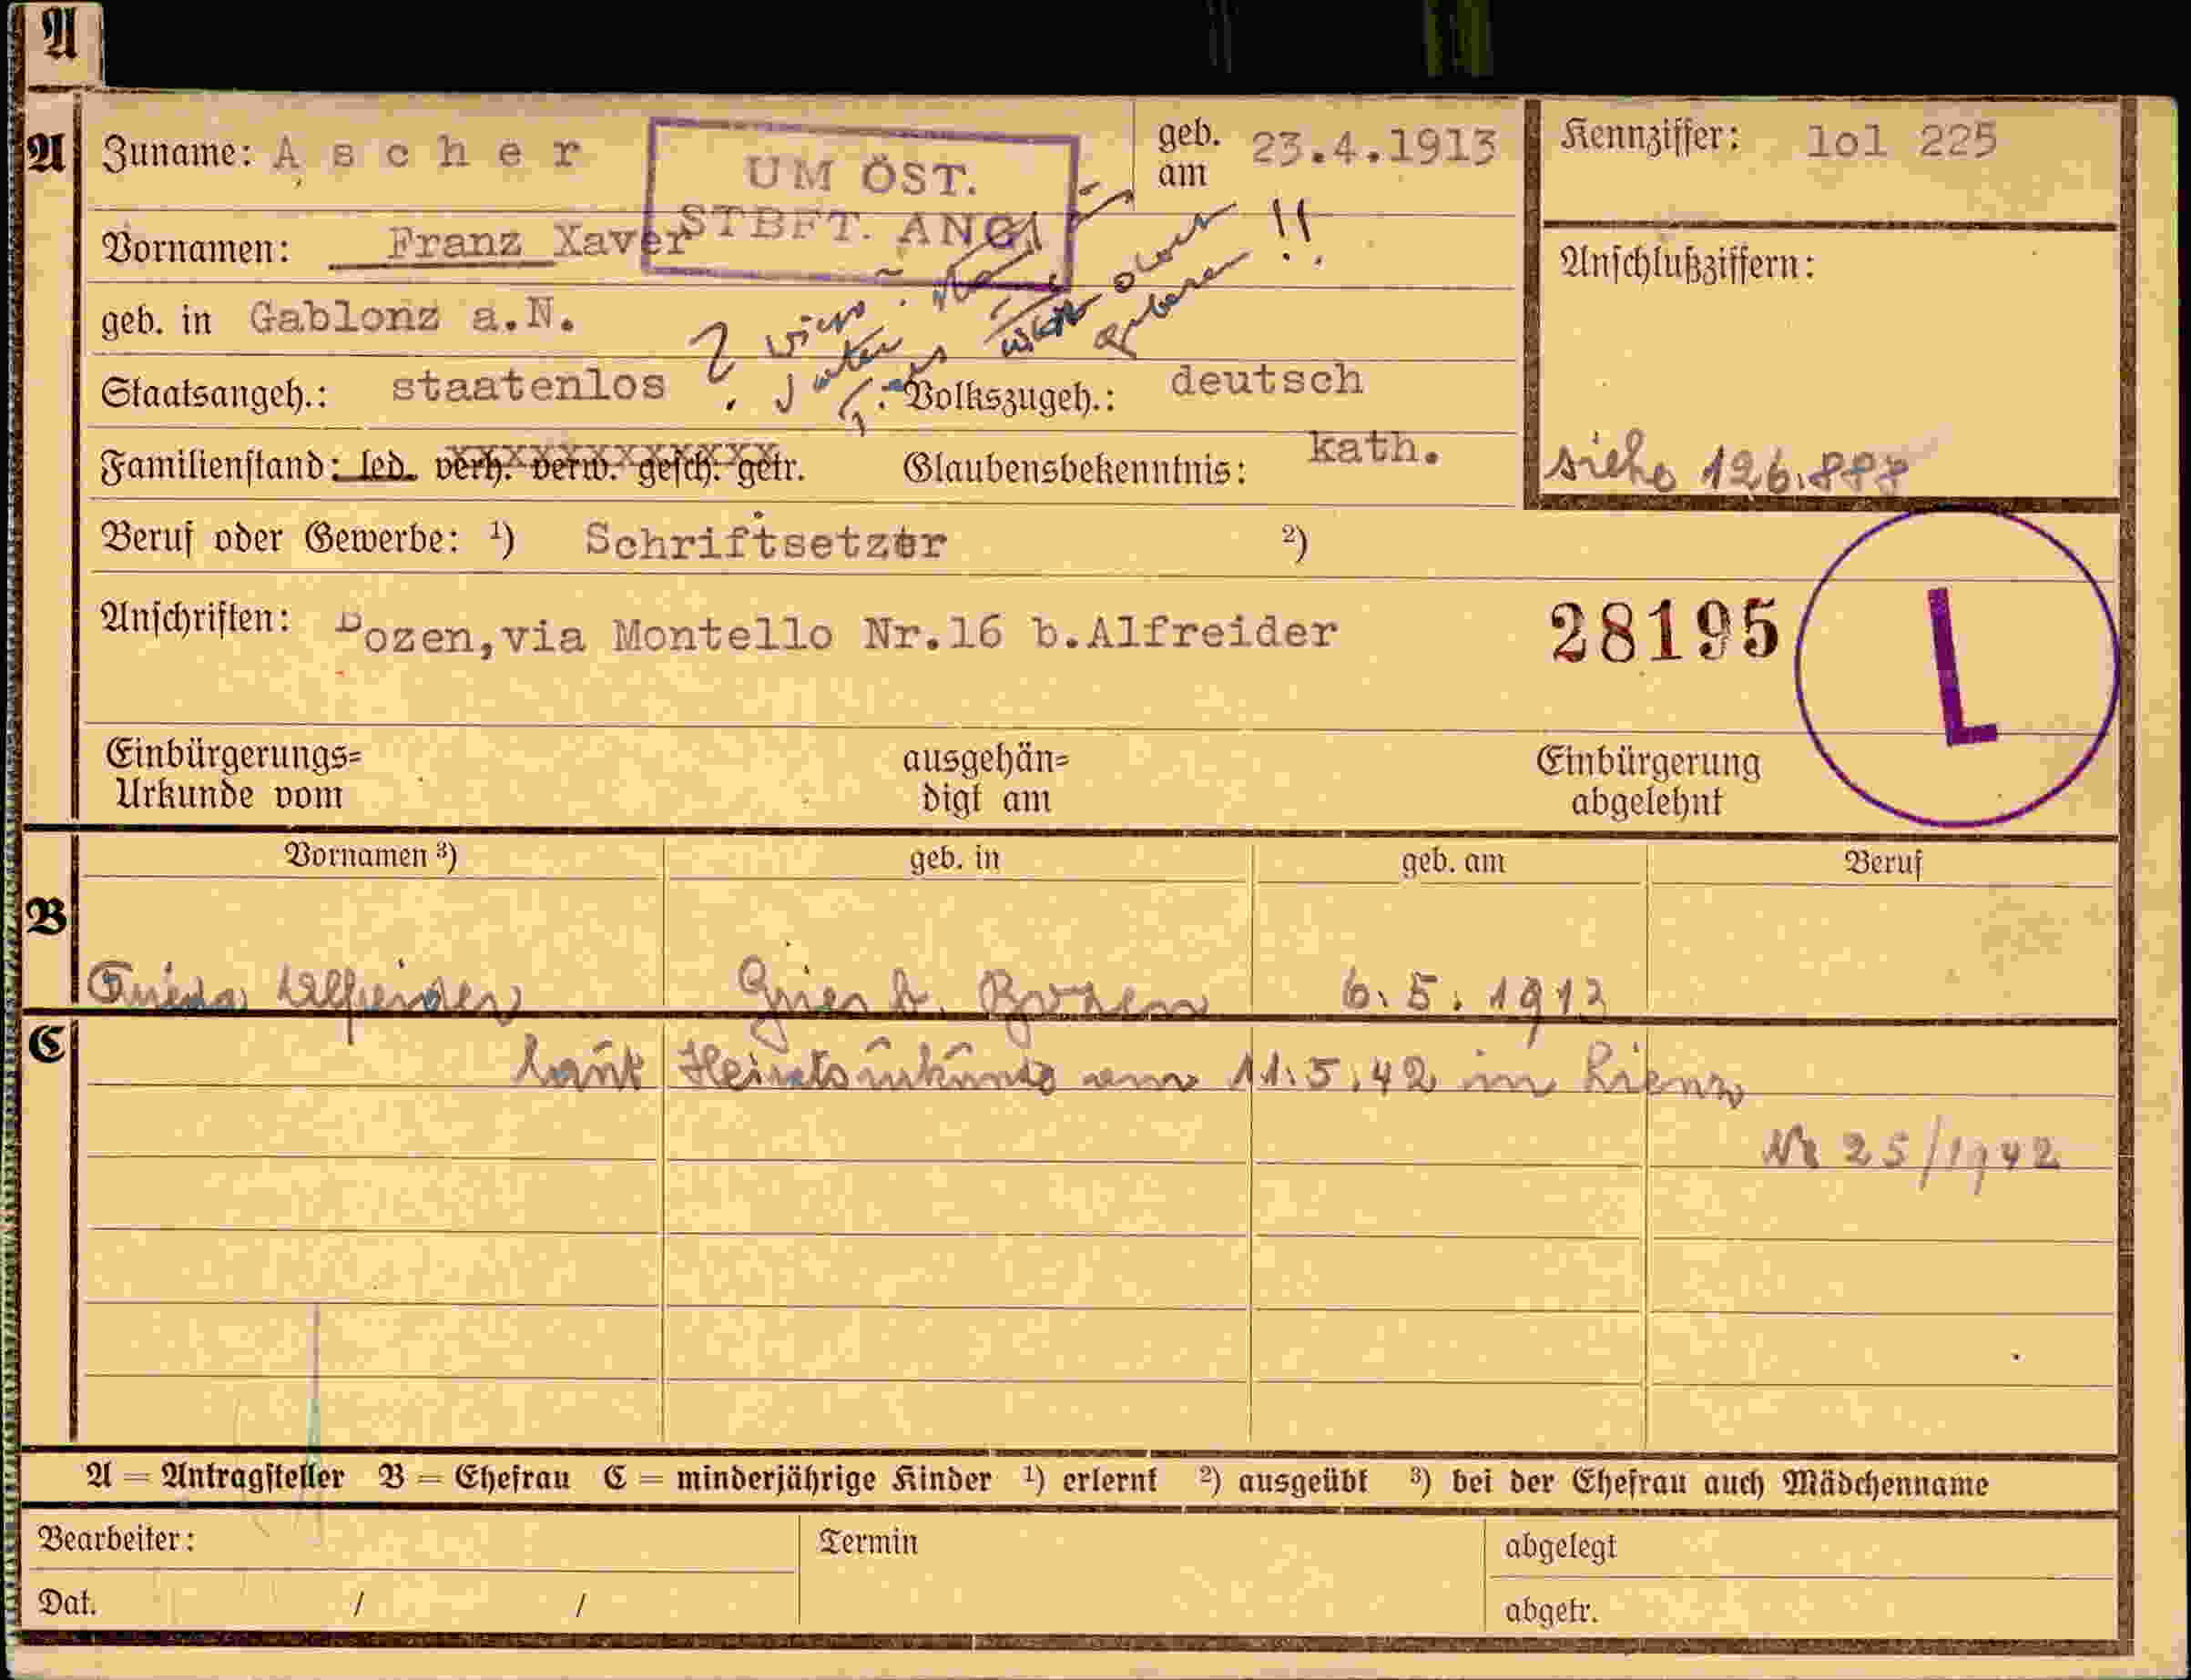 A
A Zuname: Ascher geb. am 23.4.1913 Kennziffer: lol 225
UM ÖST.
STBFT. ANG.
Vornamen: Franz Xaver Anschlußziffern:
geb. in Gablonz a.N.
Staatsangeh.: staatenlos Volkszugeh.: deutsch
Familienstand: led. verh. verw. gesch. getr. Glaubensbekenntnis: kath. siehe 126.888
Beruf oder Gewerbe: 1) Schriftsetzer 2)
Anschriften: Bozen,via Montello Nr.16 b.Alfreider 28195 L
Einbürgerungs= ausgehän= Einbürgerung
Urkunde vom digt am abgelehnt
Vornamen 3) geb. in geb. am Beruf
B Frieda Alfreider Gries b. Bozen 6.5.1913
C laut Heiratsurkunde am 11.5.42 in Lienz
Nr 25/1942
A = Antragsteller B = Ehefrau C = minderjährige Kinder 1) erlernt 2) ausgeübt 3) bei der Ehefrau auch Mädchenname
Bearbeiter: Termin abgelegt
Dat. / / abgetr.